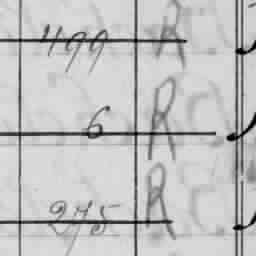 499 R
6 R
275 R